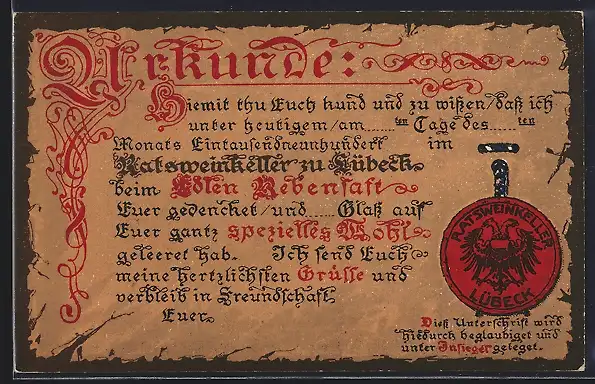 Urkunde:
Hiemit thu Euch kund und zu wißen/daß ich
unter heutigem/am........ten Tage des........ten
Monats Eintausendneunhundert im
Ratsweinkeller zu Lübeck
beim Edlen Rebensaft
Euer gedencket/und..... Glaß auf
Euer gantz spezielles Wohl
geleeret hab. Ich send Euch
meine hertzlichsten Grüsse und
verbleib in Freundschaft
Euer.
RATSWEINKELLER
LÜBECK
Dieß Unterschrift wird
hiedurch beglaubiget und
unter Insiegel geleget.